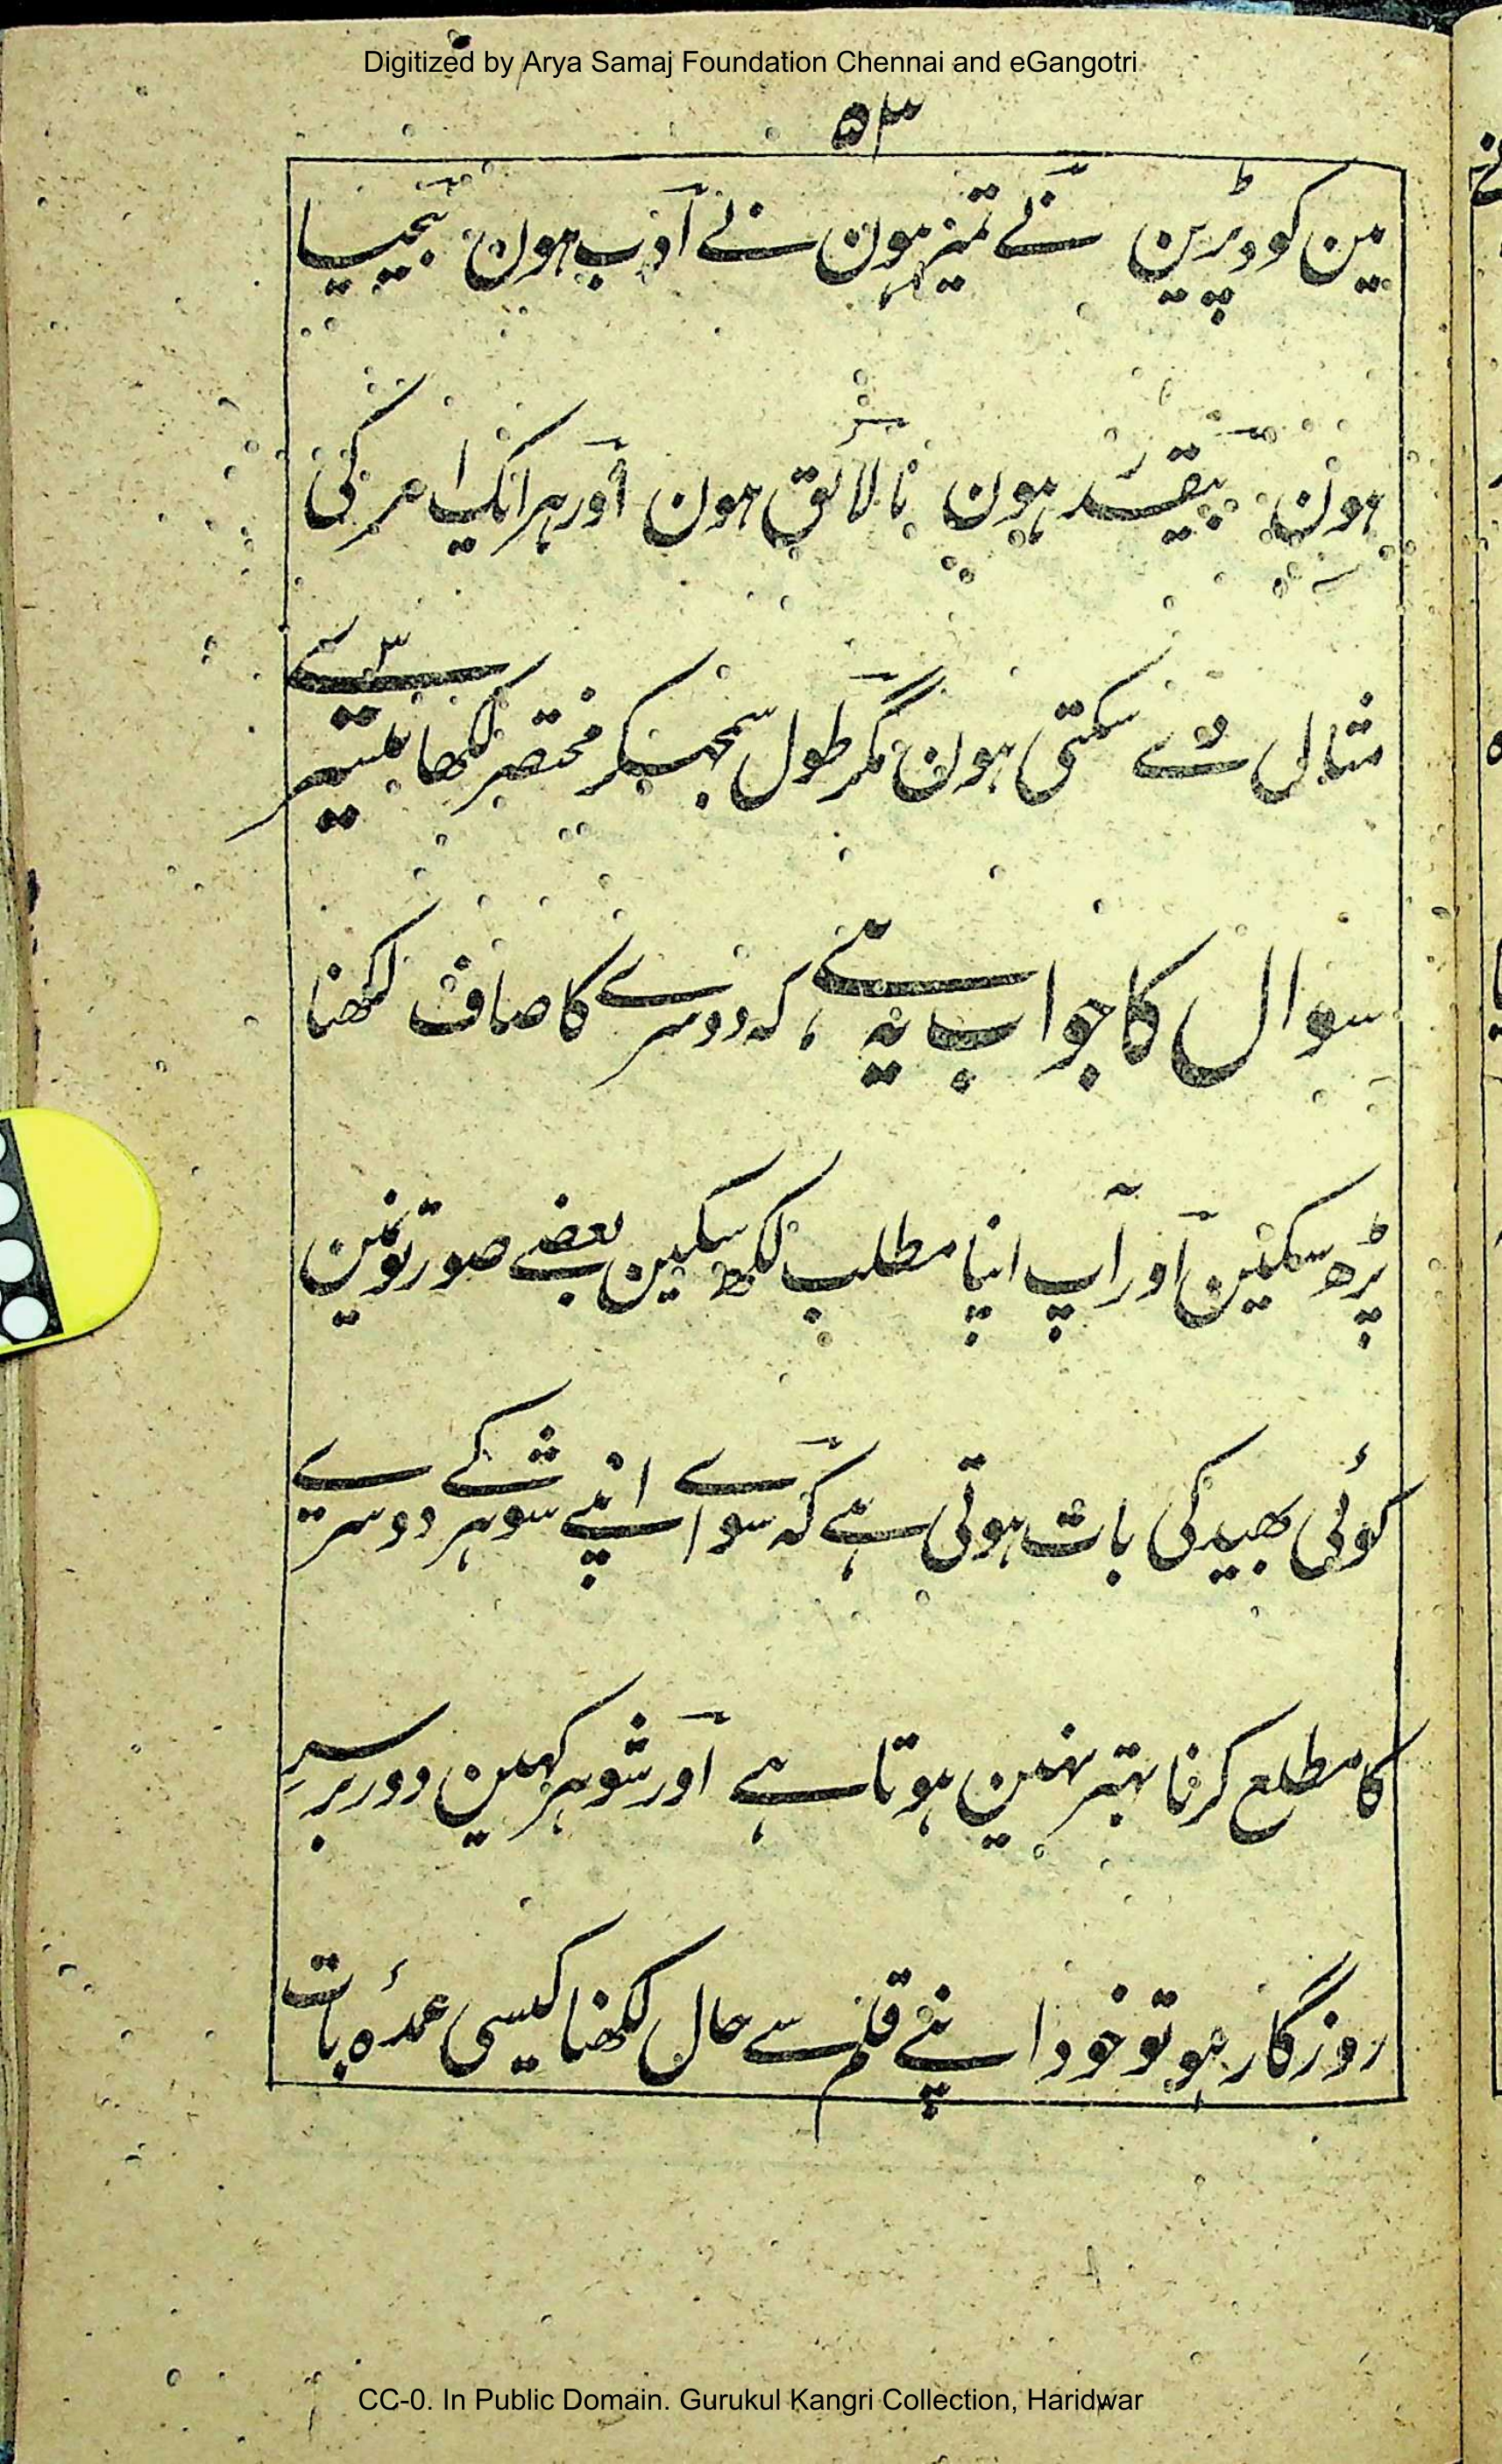 Digitized by Arya Samaj Foundation Chennai and eGangotri
۵۳
مین کود پڑین بے تمیز ہون بے ادب ہون بیحیا
ہون بیقدر ہون نالائق ہون اور ہر ایک امر کی
مثال دے سکتی ہون مگر طول سمجھکر مختصر لکھا تیسرے
سوال کا جواب یہ ہے کہ دوسرے کا صاف لکھنا
پڑھ سکین اور آپ اپنا مطلب لکھ سکین بعضے صورتونمین
کوئی بھید کی بات ہوتی ہے کہ سواے اپنے شوہر کے دوسرے
کا مطلع کرنا بہتر نہین ہوتا ہے اور شوہر کہین دور بر سر
روزگار ہو تو خود اپنے قلم سے حال لکھنا کیسی عمدہ بات
CC-0. In Public Domain. Gurukul Kangri Collection, Haridwar